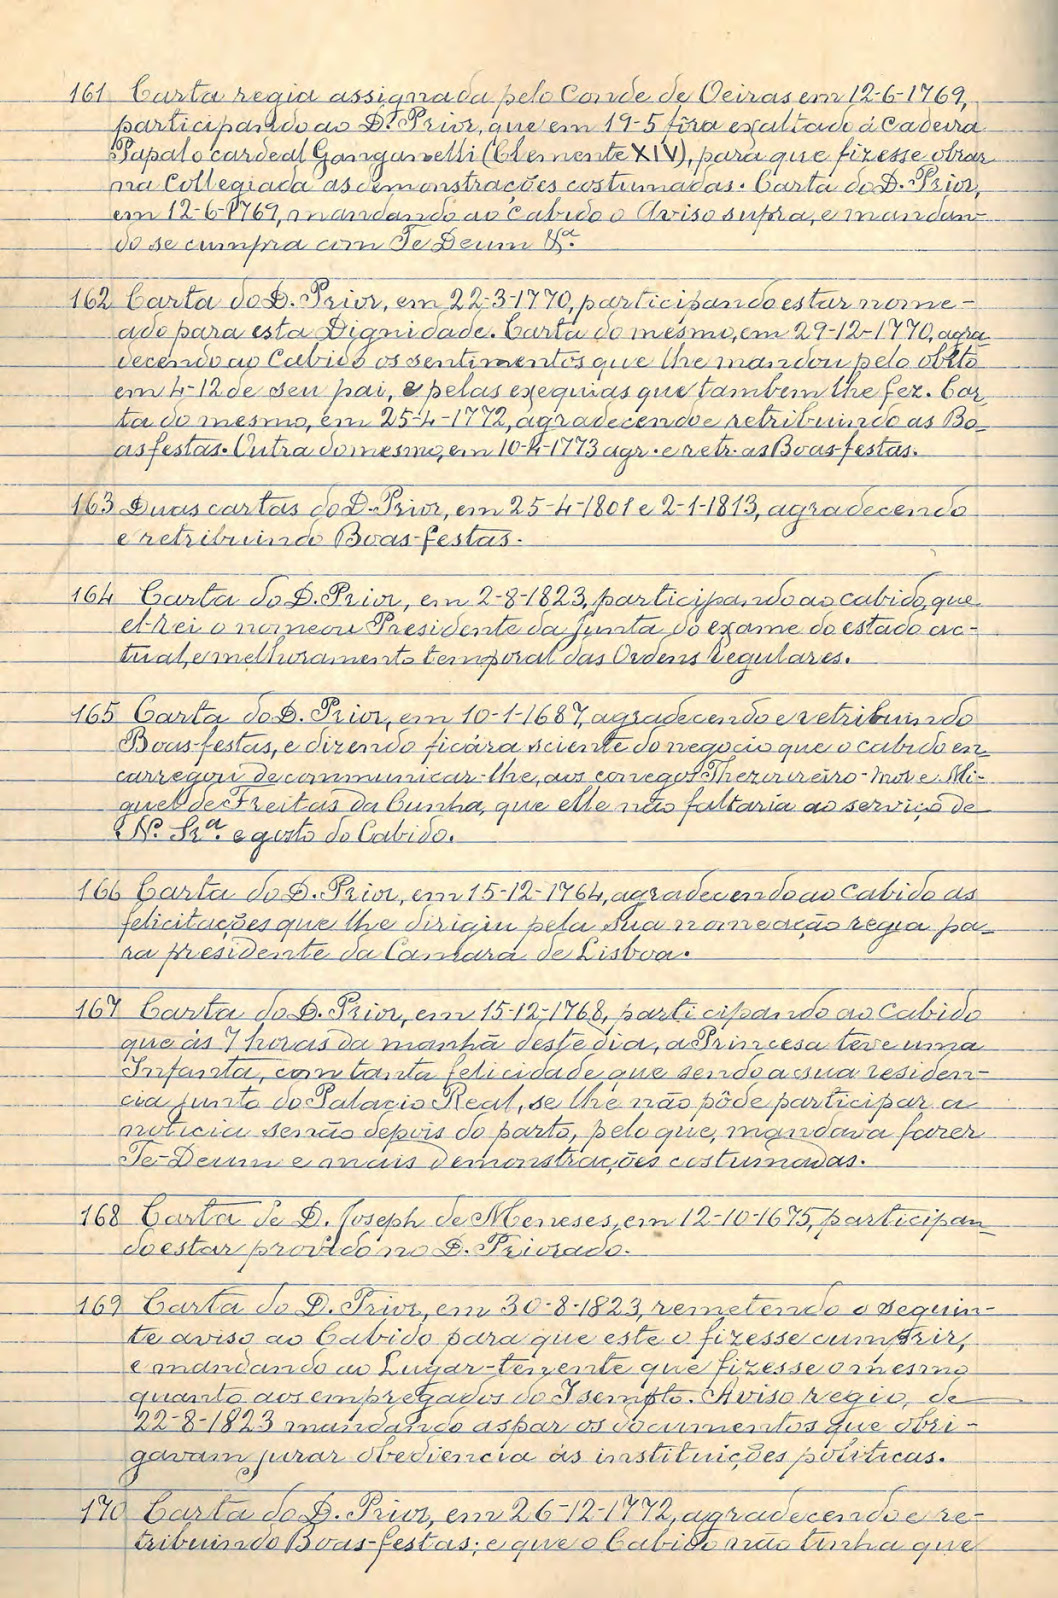 161 Carta regia assignada pelo Conde de Oeiras em 12-6-1769,
participando ao D. Prior, que em 19-5 fôra exaltado á Cadeira
Papal o cardeal Ganganelli (Clemente XIV), para que fizesse obrar
na Collegiada as demonstrações costumadas. Carta do D. Prior,
em 12-6-1769, mandando ao cabido o Aviso supra, e mandan-
do se cumpra com Te Deum &ª.
162 Carta do D. Prior, em 22-3-1770, participando estar nome-
ado para esta Dignidade. Carta do mesmo, em 29-12-1770, agra-
decendo ao Cabido os sentimentos que lhe mandou pelo obito
em 4-12 de seu pai, e pelas exequias que tambem lhe fez. Car-
ta do mesmo, em 25-4-1772, agradecendo e retribuindo as Bo-
as festas. Outra do mesmo, em 10-4-1773 agr. e retr. as Boas-festas.
163 Duas cartas do D. Prior, em 25-4-1801 e 2-1-1813, agradecendo
e retribuindo Boas-festas.
164 Carta do D. Prior, em 2-8-1823, participando ao cabido, que
el-rei o nomeou Presidente da Junta do exame do estado ac-
tual, e melhoramento temporal das Ordens Regulares.
165 Carta do D. Prior, em 10-1-1687, agradecendo e retribuindo
Boas-festas, e dizendo ficára sciente do negocio que o cabido en-
carregou de communicar-lhe, aos conegos Thezoureiro-mor e Mi-
guel de Freitas da Cunha, que elle não faltaria ao serviço de
Nª. Srª. e gosto do Cabido.
166 Carta do D. Prior, em 15-12-1764, agradecendo ao Cabido as
felicitações que lhe dirigiu pela sua nomeação regia pa-
ra presidente da Camara de Lisboa.
167 Carta do D. Prior, em 15-12-1768, participando ao Cabido
que ás 7 horas da manhã deste dia, a Princesa teve uma
Infanta, com tanta felicidade que sendo a sua residen-
cia junto do Palacio Real, se lhe não pôde participar a
noticia senão depois do parto, pelo que, mandava fazer
Te-Deum e mais demonstrações costumadas.
168 Carta de D. Joseph de Meneses, em 12-10-1675, participan-
do estar provido no D. Priorado.
169 Carta do D. Prior, em 30-8-1823, remetendo o seguin-
te aviso ao Cabido para que este o fizesse cumprir,
e mandando ao Lugar-tenente que fizesse o mesmo
quanto aos empregados do Isempto. Aviso regio, de
22-8-1823 mandando aspar os documentos que obri-
gavam jurar obediencia ás instituições politicas.
170 Carta do D. Prior, em 26-12-1772, agradecendo e re-
tribuindo Boas-festas; e que o Cabido não tinha que